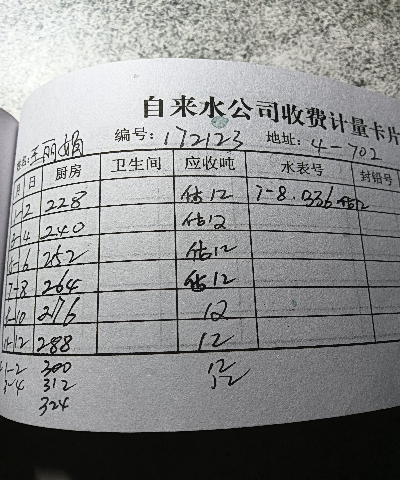 自来水公司收费计量卡片
姓名:王丽娟 编号:172123 地址:4-702
月 日 厨房 卫生间 应收吨 水表号 封铅号
1-2 228 估12 7-8.0336 估12
3-4 240 估12
5-6 252 估12
7-8 264 估12
9-10 276 12
11-12 288 12
1-2 300 12
3-4 312 12
324